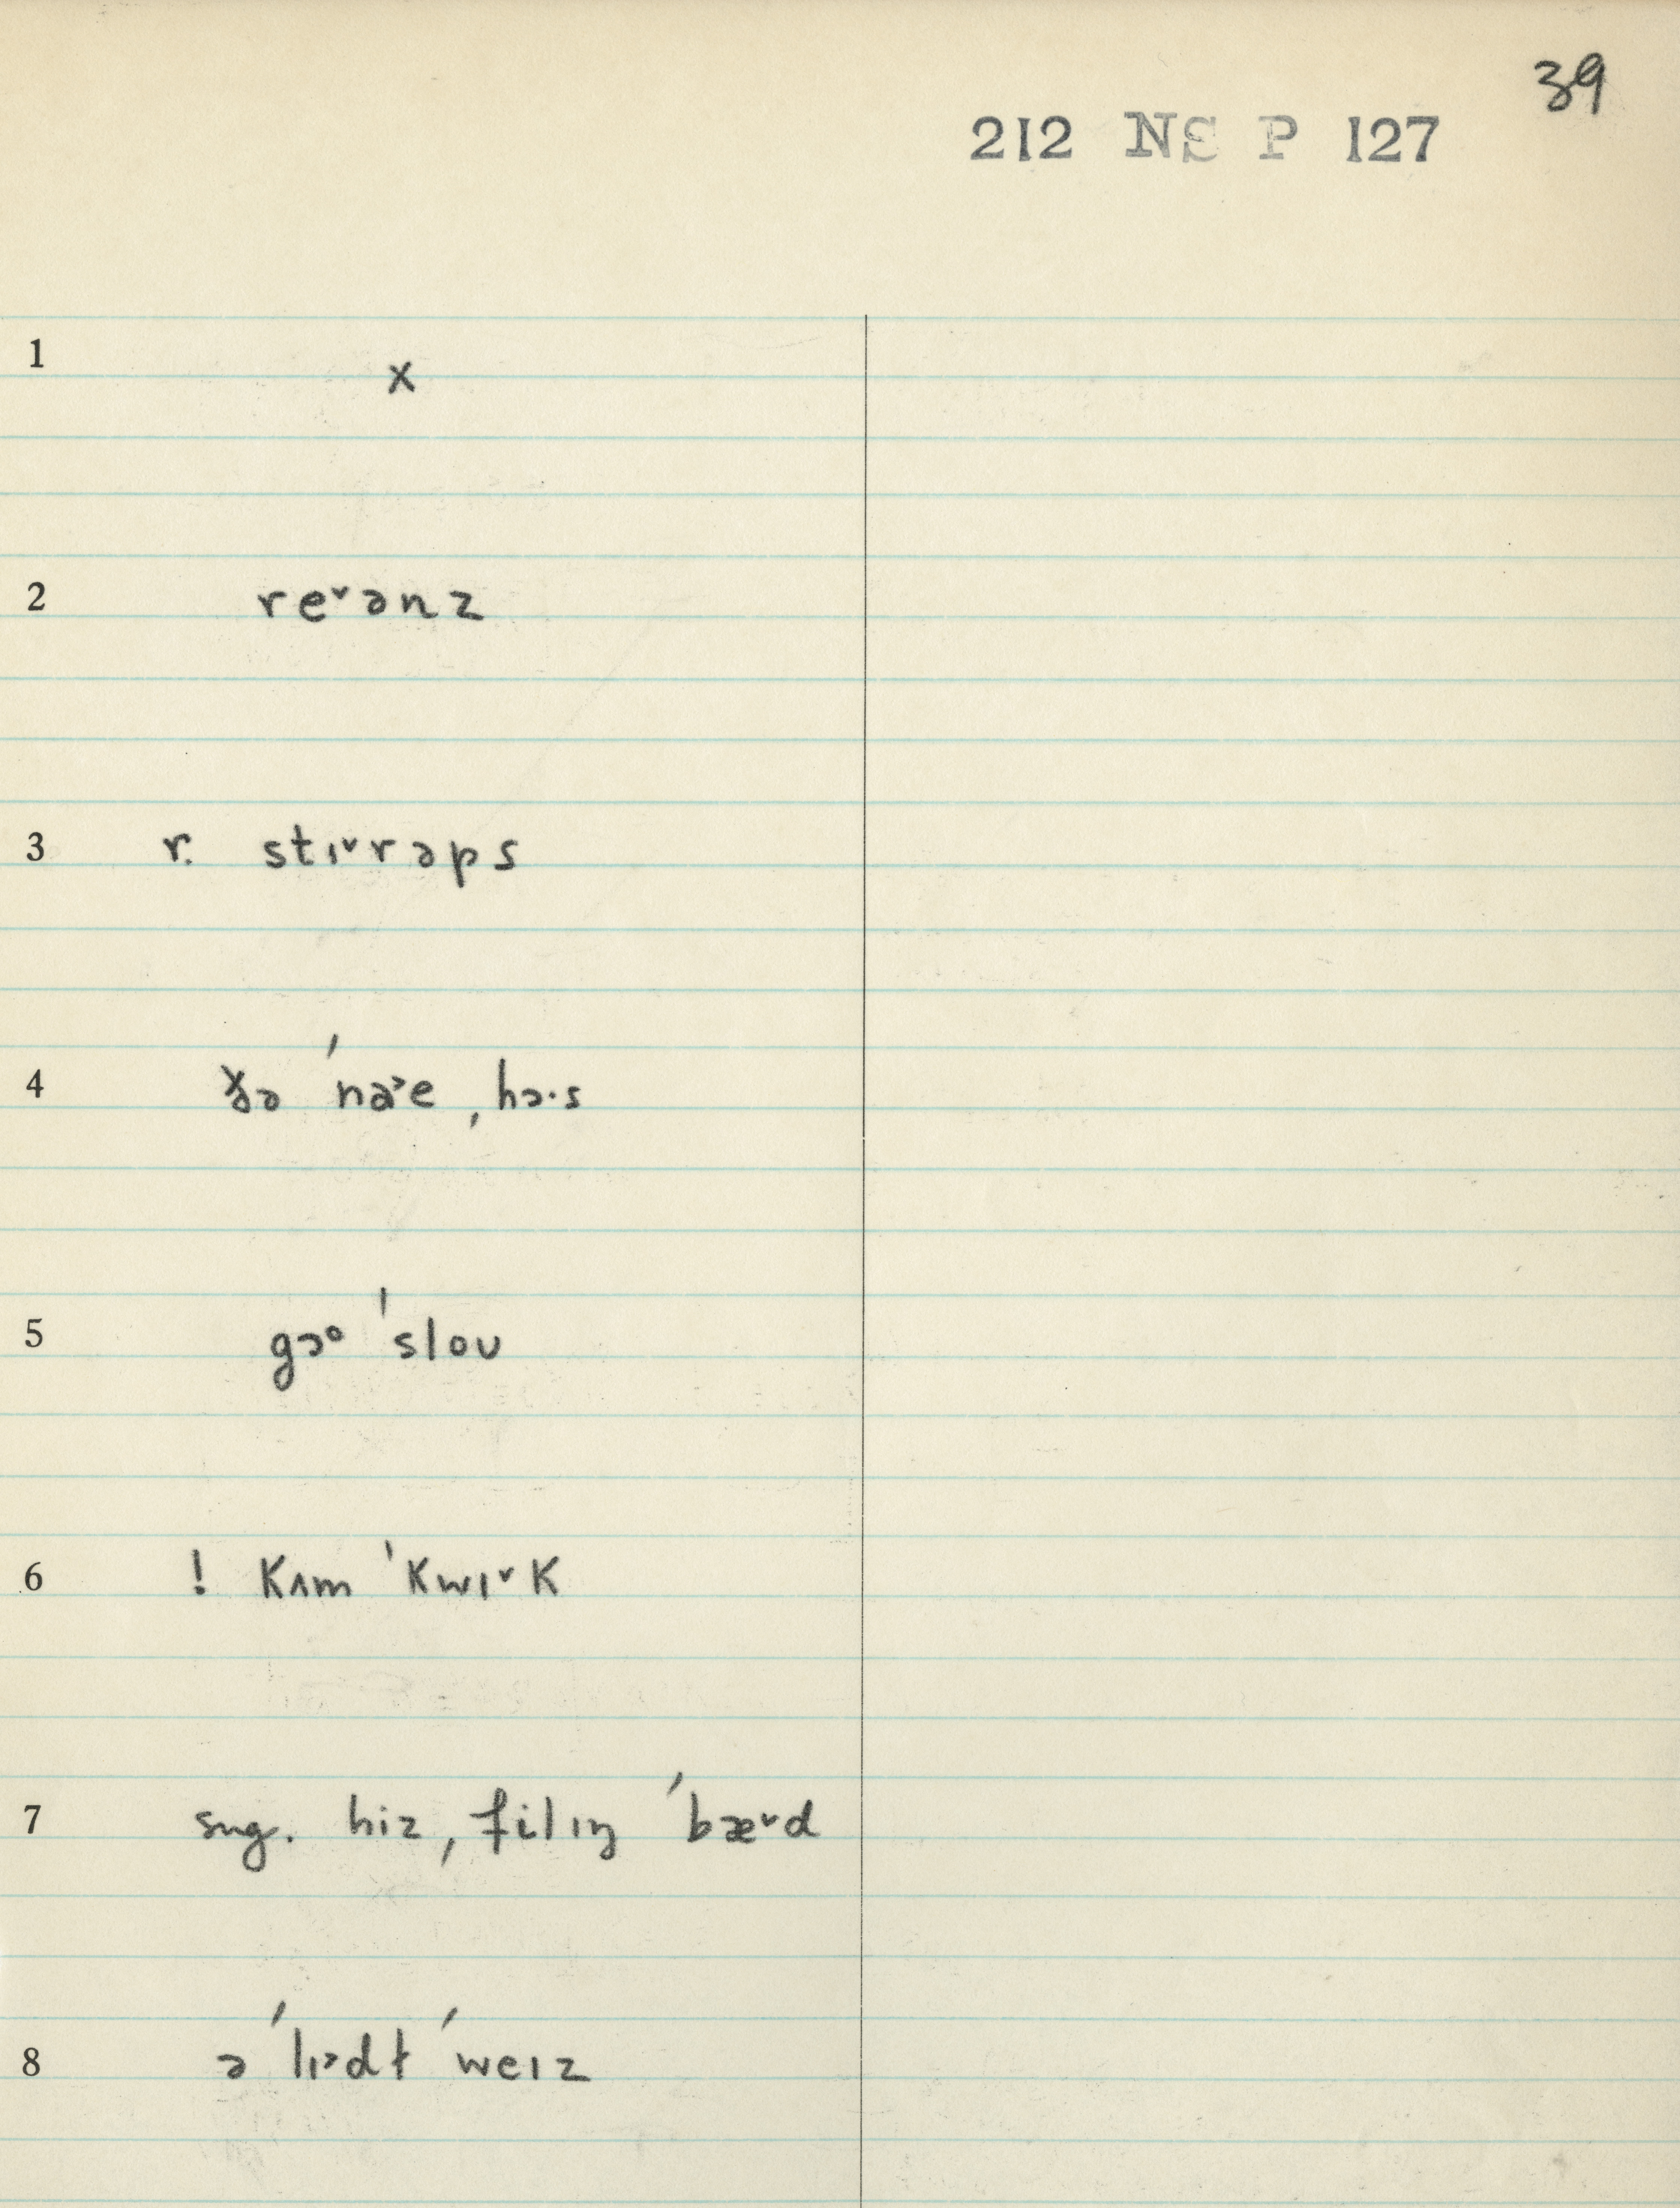 39
212 NS P 127
1 x
2 re˅ənz
3 r. stɪ˅rəps
4 ðə ˈna˃e ˌhɔ·s
5 gɔᵒ ˈsloʊ
6 ! kʌm ˈkwɪ˅k
7 sug. hiz ˌfilɪŋ ˈbæ˅d
8 ə ˈlɪ˃dɫ ˈweɪz